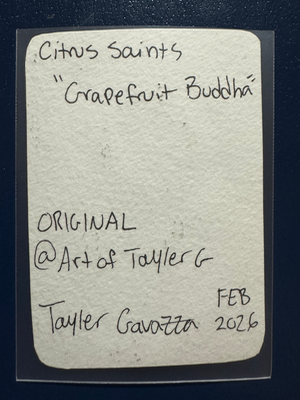 Citrus Saints
"Grapefruit Buddha"
ORIGINAL
@Art of Tayler G
Tayler Gavazza FEB 2026